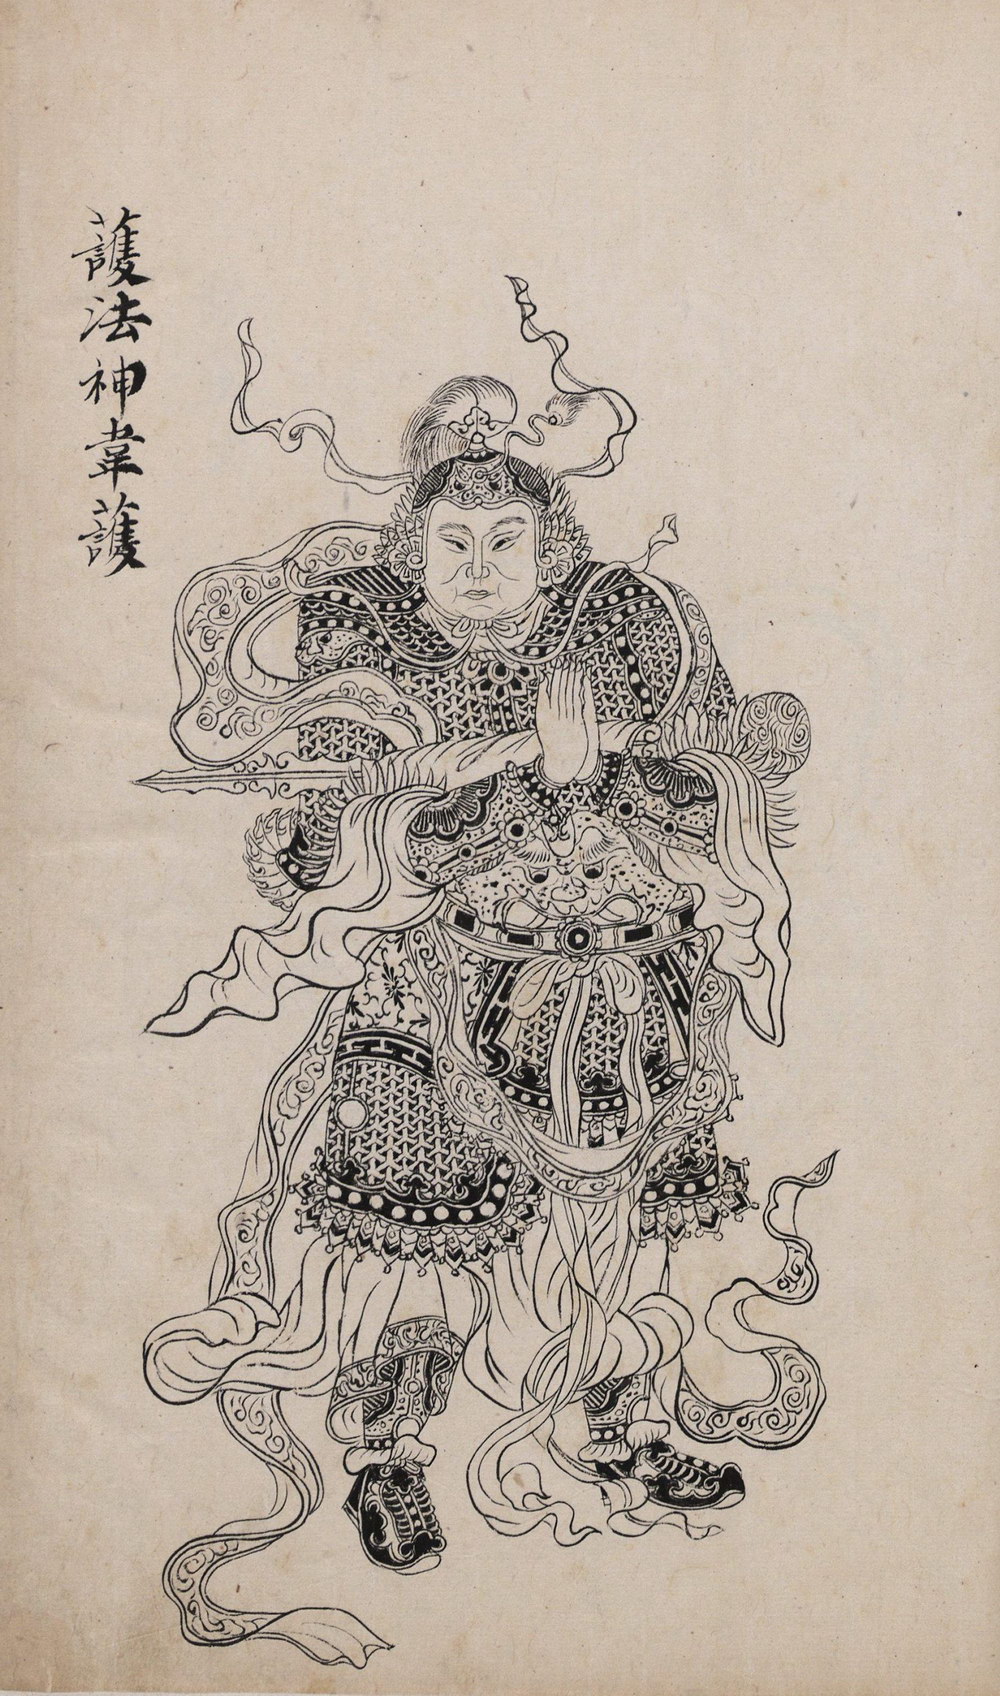 護法神韋護